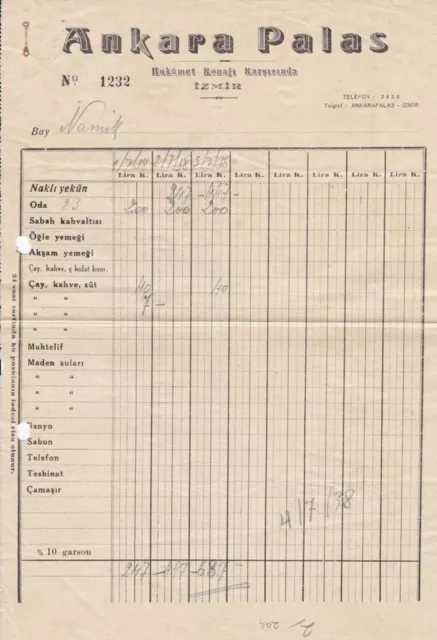 Ankara Palas
Hukûmet Konağı Karşısında
İZMİR
No 1232
TELEFON : 3426
Telgraf : ANKARAPALAS - İZMİR
Bay Namık
Lira K. Lira K. Lira K. Lira K. Lira K. Lira K. Lira K. Lira K.
Naklı yekûn 247 - 447 -
Oda 23 200 200 200
Sabah kahvaltısı
Öğle yemeği
Akşam yemeği
Çay, kahve, ç kolat kom.
Çay, kahve, süt 40 40
" " 7 -
" "
" "
Muhtelif
Maden suları
" "
" "
" "
" "
Banyo
Sabun
Telefon
Teshinat
Çamaşır
4/7/38
% 10 garson
247 447 687
24 saat zarfında bu pusulanın tediyesi rica olunur.